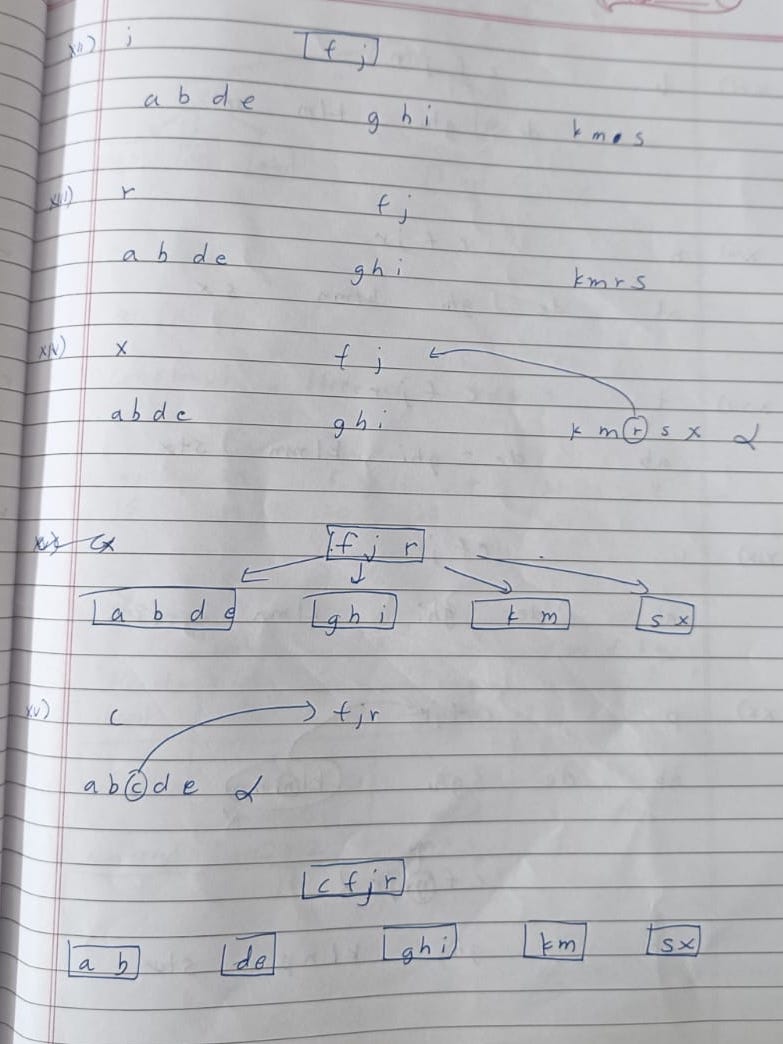 xii) i
f j
a b d e g h i k m s
xiii) r
f j
a b d e g h i k m r s
xiv) x f j
a b d e g h i k m r s x α
f j r
a b d e g h i k m s x
xv) c f j r
a b c d e α
c f j r
a b d e g h i k m s x